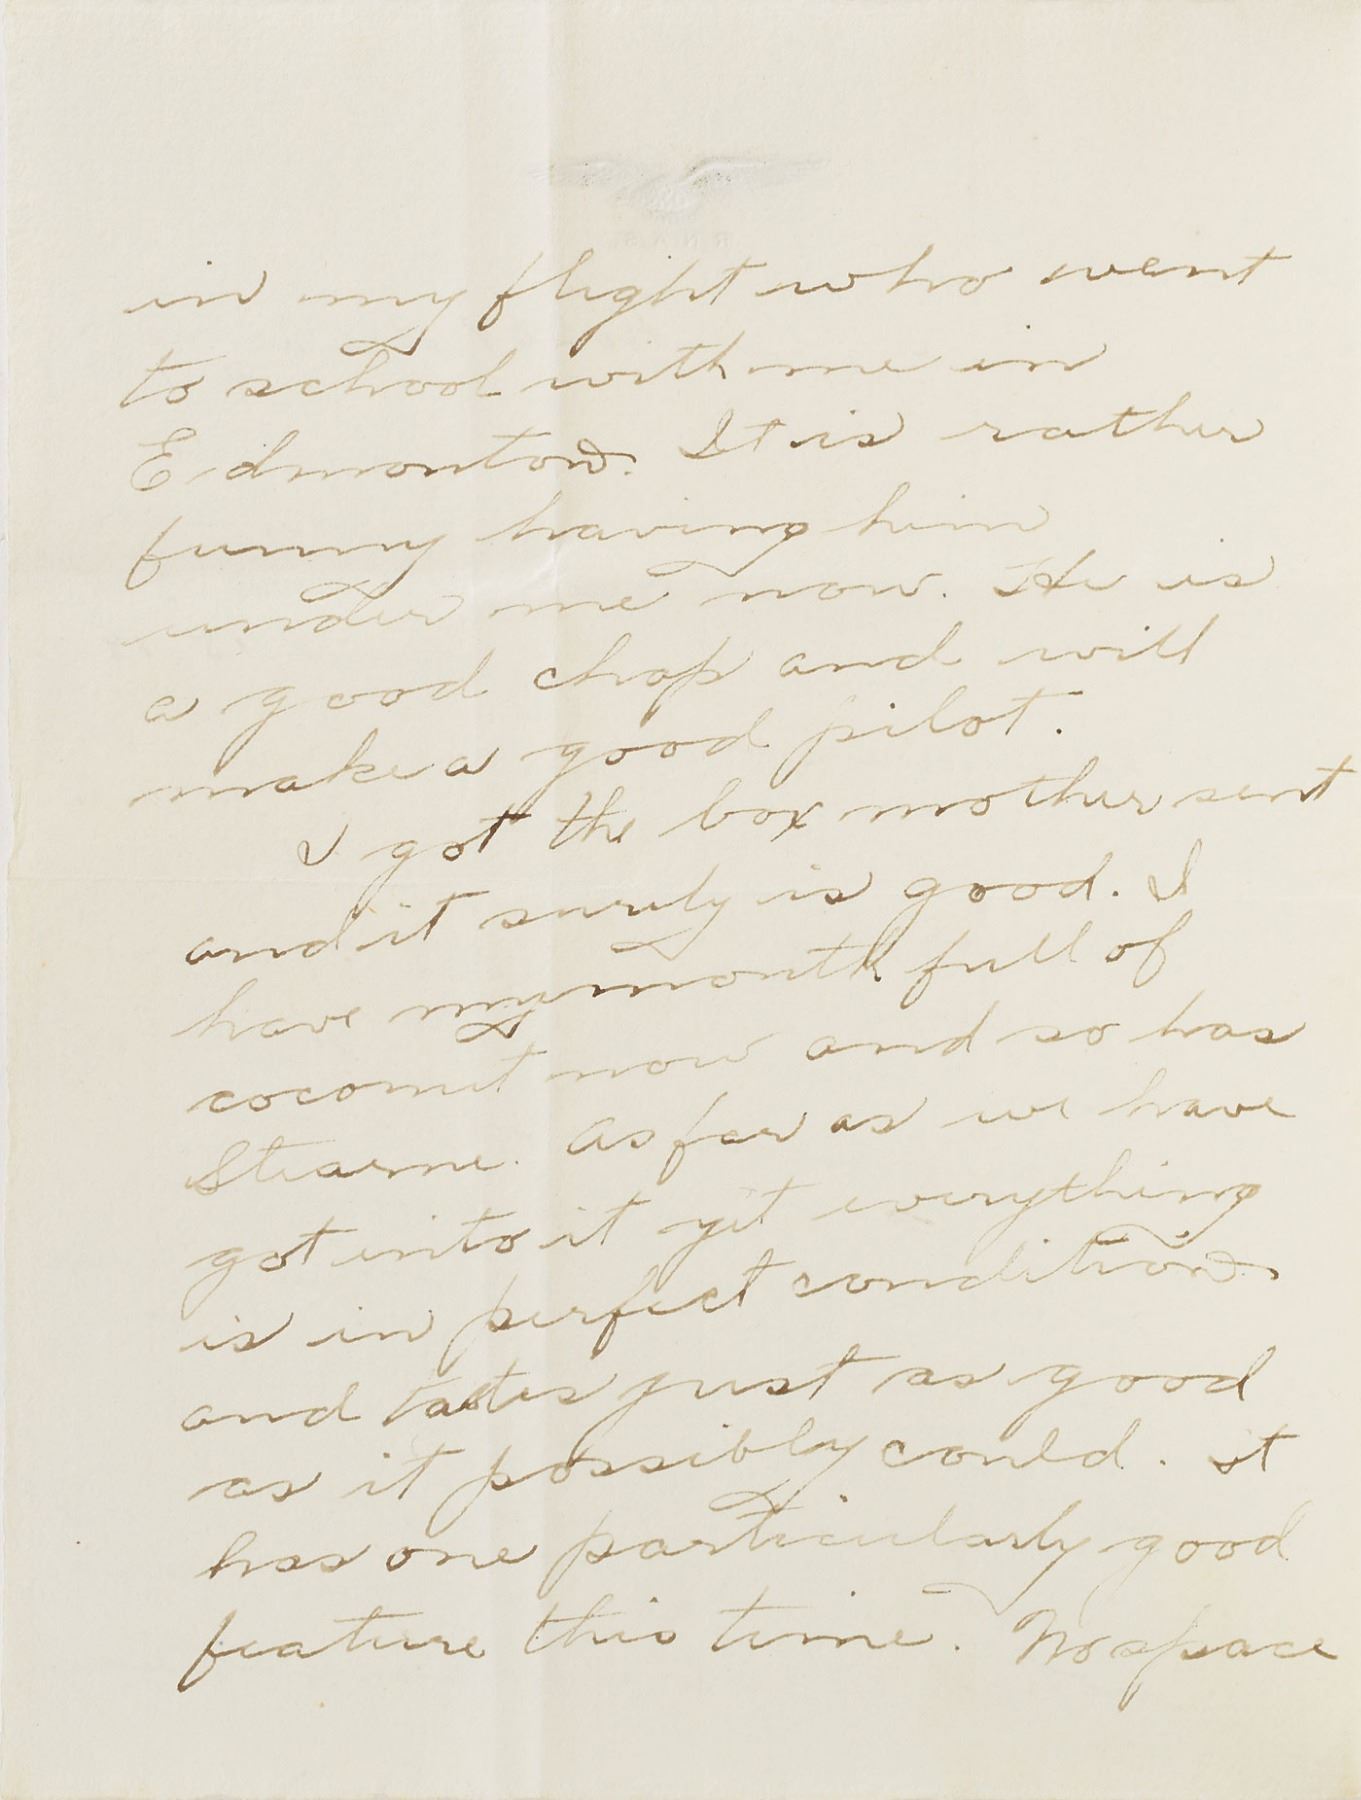 in my flight who went
to school with me in
Edmonton. It is rather
funny having him
under me now. He is
a good chap and will
make a good pilot.
I got the box mother sent
and it surely is good. I
have my mouth full of
coconut now and so has
Stearne. As far as we have
got into it yet everything
is in perfect condition
and tastes just as good
as it possibly could. It
has one particularly good
feature this time. No space